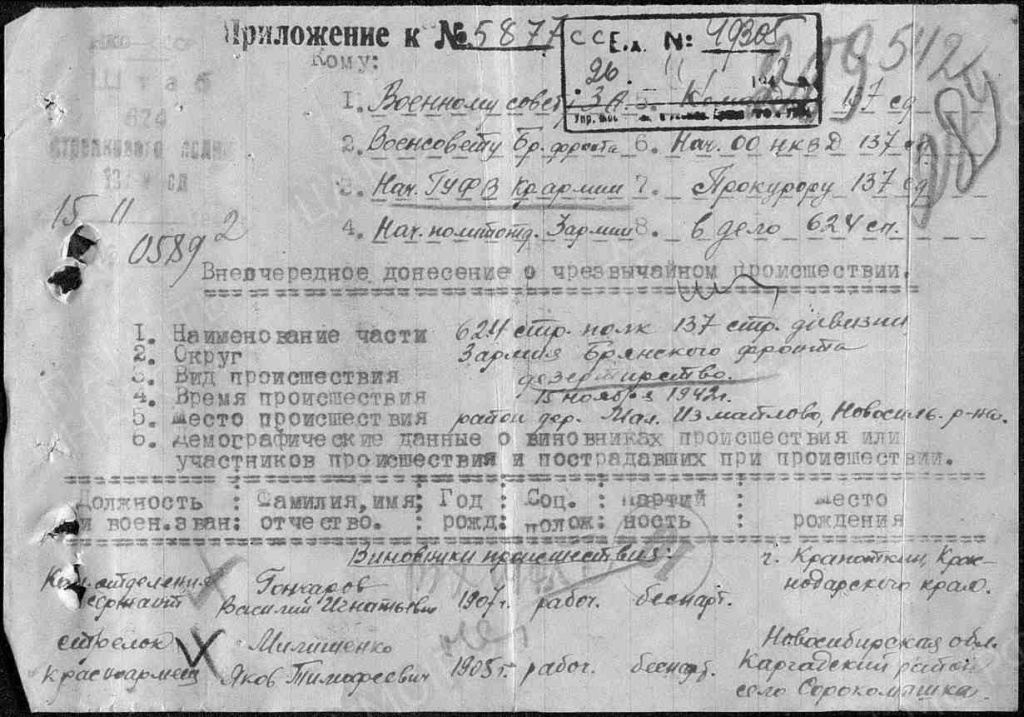 Приложение к № 5877
СС Е.д. № 49305
26. 11
209542
Кому:
Штаб
624
1. Военному совет ЗА 5. Ком 137 сд
2. Военсовету Бр. фронта 6. Нач. ОО НКВД 137 сд
3. Нач. ГУФВ Кр армии 7. Прокурору 137 сд
4. Нач. политотд. 3армии 8. в дело 624 сп.
15 11 2
0589
Внеочередное донесение о чрезвычайном происшествии.
1. Наименование части 624 стр. полк 137 стр. дивизии
2. Округ 3армия Брянского фронта
3. Вид происшествия дезертирство.
4. Время происшествия 15 ноября 1942г.
5. Место происшествия район дер. Мал. Измайлово, Новосиль. р-на.
6. Демографические данные о виновниках происшествия или
участников происшествия и пострадавших при происшествии.
Должность : Фамилия, имя; : Год : Соц. : партий : Место
и воен.зван: отчество. : рожд: полож: ность : рождения
Виновники происшествия:
Ком. отделения Гончаров г. Кропоткин, Крас-
сержант Василий Игнатьевич 1907г. рабоч. беспарт. нодарского края.
стрелок Милищенко Новосибирская обл.
красноармеец Яков Тимофеевич 1905г. рабоч. беспарт. Каргатский район
село Сорокамышка.